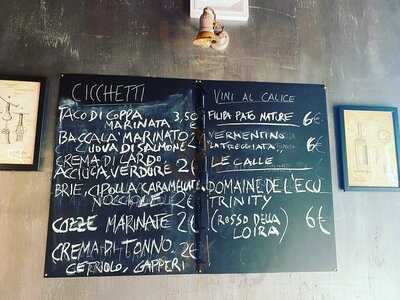 CICCHETTI
TACO DI COPPA 3,50
MARINATA €
BACCALÀ MARINATO 2
UOVA DI SALMONE €
CREMA DI LARDO
ACCIUGA VERDURE 2€
BRIE, CIPOLLA CARAMELLATA
NOCCIOLE 2€
COZZE MARINATE 2€
CREMA DI TONNO 2€
CETRIOLO, CAPPERI
VINI AL CALICE
FILIPA PATO NATURE 6€
VERMENTINO
LATREGGIATA 6€
LE CALLE
DOMAINE DE L'ECU
TRINITY
(ROSSO DELLA 6€
LOIRA)